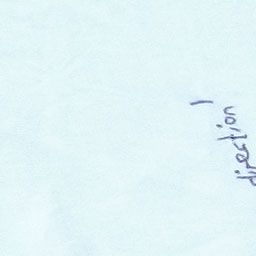 direction 1